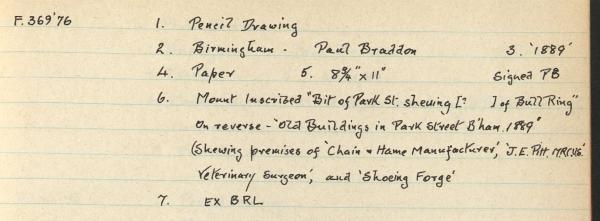 F. 369'76 1. Pencil Drawing
2. Birmingham - Paul Braddon 3. '1889'
4. Paper 5. 8¾" x 11" Signed PB
6. Mount Inscribed "Bit of Park St. shewing [? ] of Bull Ring"
On reverse - "Old Buildings in Park Street B'ham. 1889"
(Shewing premises of 'Chain & Hame Manufacturer', 'J.E. Pitt, MRCVS.
Veterinary Surgeon', and 'Shoeing Forge'
7. EX BRL